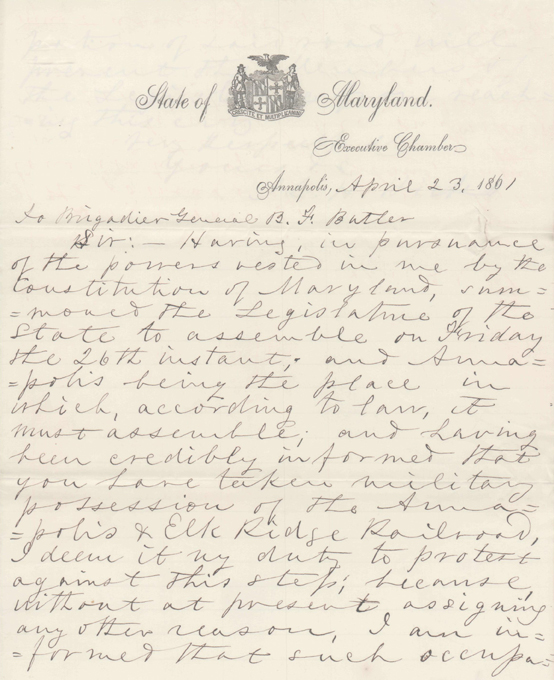 State of Maryland.
CRESCITE ET MULTIPLICAMINI
Executive Chamber
Annapolis, April 23, 1861
To Brigadier General B. F. Butler
Sir: — Having, in pursuance
of the powers vested in me by the
Constitution of Maryland, sum=
=moned the Legislature of the
State to assemble on Friday
the 26th instant; and Anna=
=polis being the place in
which, according to law, it
must assemble; and having
been credibly informed that
you have taken military
possession of the Anna=
=polis & Elk Ridge Railroad,
I deem it my duty to protest
against this step; because,
without at present assigning
any other reason, I am in=
=formed that such occupa=